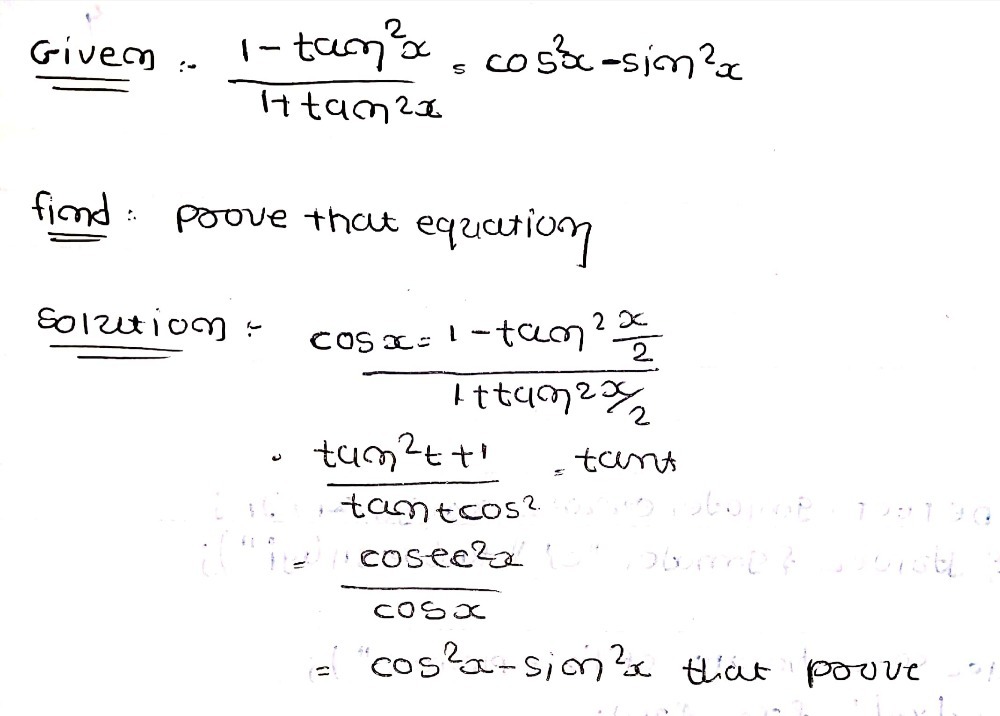 Given :- 1 - tan²x / 1 + tan²x = cos²x - sin²x
find : proove that equation
Solution :- cos x = 1 - tan² x/2 / 1 + tan² x/2
tan²t + 1 / tan t cos² = tan
= cosec²x / cos x
= cos²x - sin²x that proove